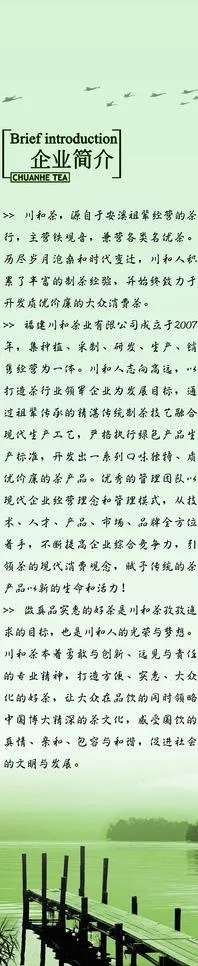 Brief introduction
企业简介
CHUANHE TEA
>> 川和茶，源自于安溪祖辈经营的茶
行，主营铁观音，兼营各类名优茶。
历尽岁月沧桑和时代变迁，川和人积
累了丰富的制茶经验，并始终致力于
开发质优价廉的大众消费茶。
>> 福建川和茶业有限公司成立于2007
年，集种植、采制、研发、生产、销
售经营为一体。川和人志向高远，以
打造茶行业领军企业为发展目标，通
过祖辈传承的精湛传统制茶技艺融合
现代生产工艺，严格执行绿色产品生
产标准，开发出一系列口味独特、质
优价廉的茶产品。优秀的管理团队以
现代企业经营理念和管理模式，从技
术、人才、产品、市场、品牌全方位
着手，不断提高企业综合竞争力，引
领茶的现代消费观念，赋予传统的茶
产品以新的生命和活力！
>> 做真品实惠的好茶是川和茶孜孜追
求的目标，也是川和人的光荣与梦想。
川和茶本着勇敢与创新、远见与责任
的专业精神，打造方便、实惠、大众
化的好茶，让大众在品饮的闲时领略
中国博大精深的茶文化，感受国饮的
真情、亲和、包容与和谐，促进社会
的文明与发展。